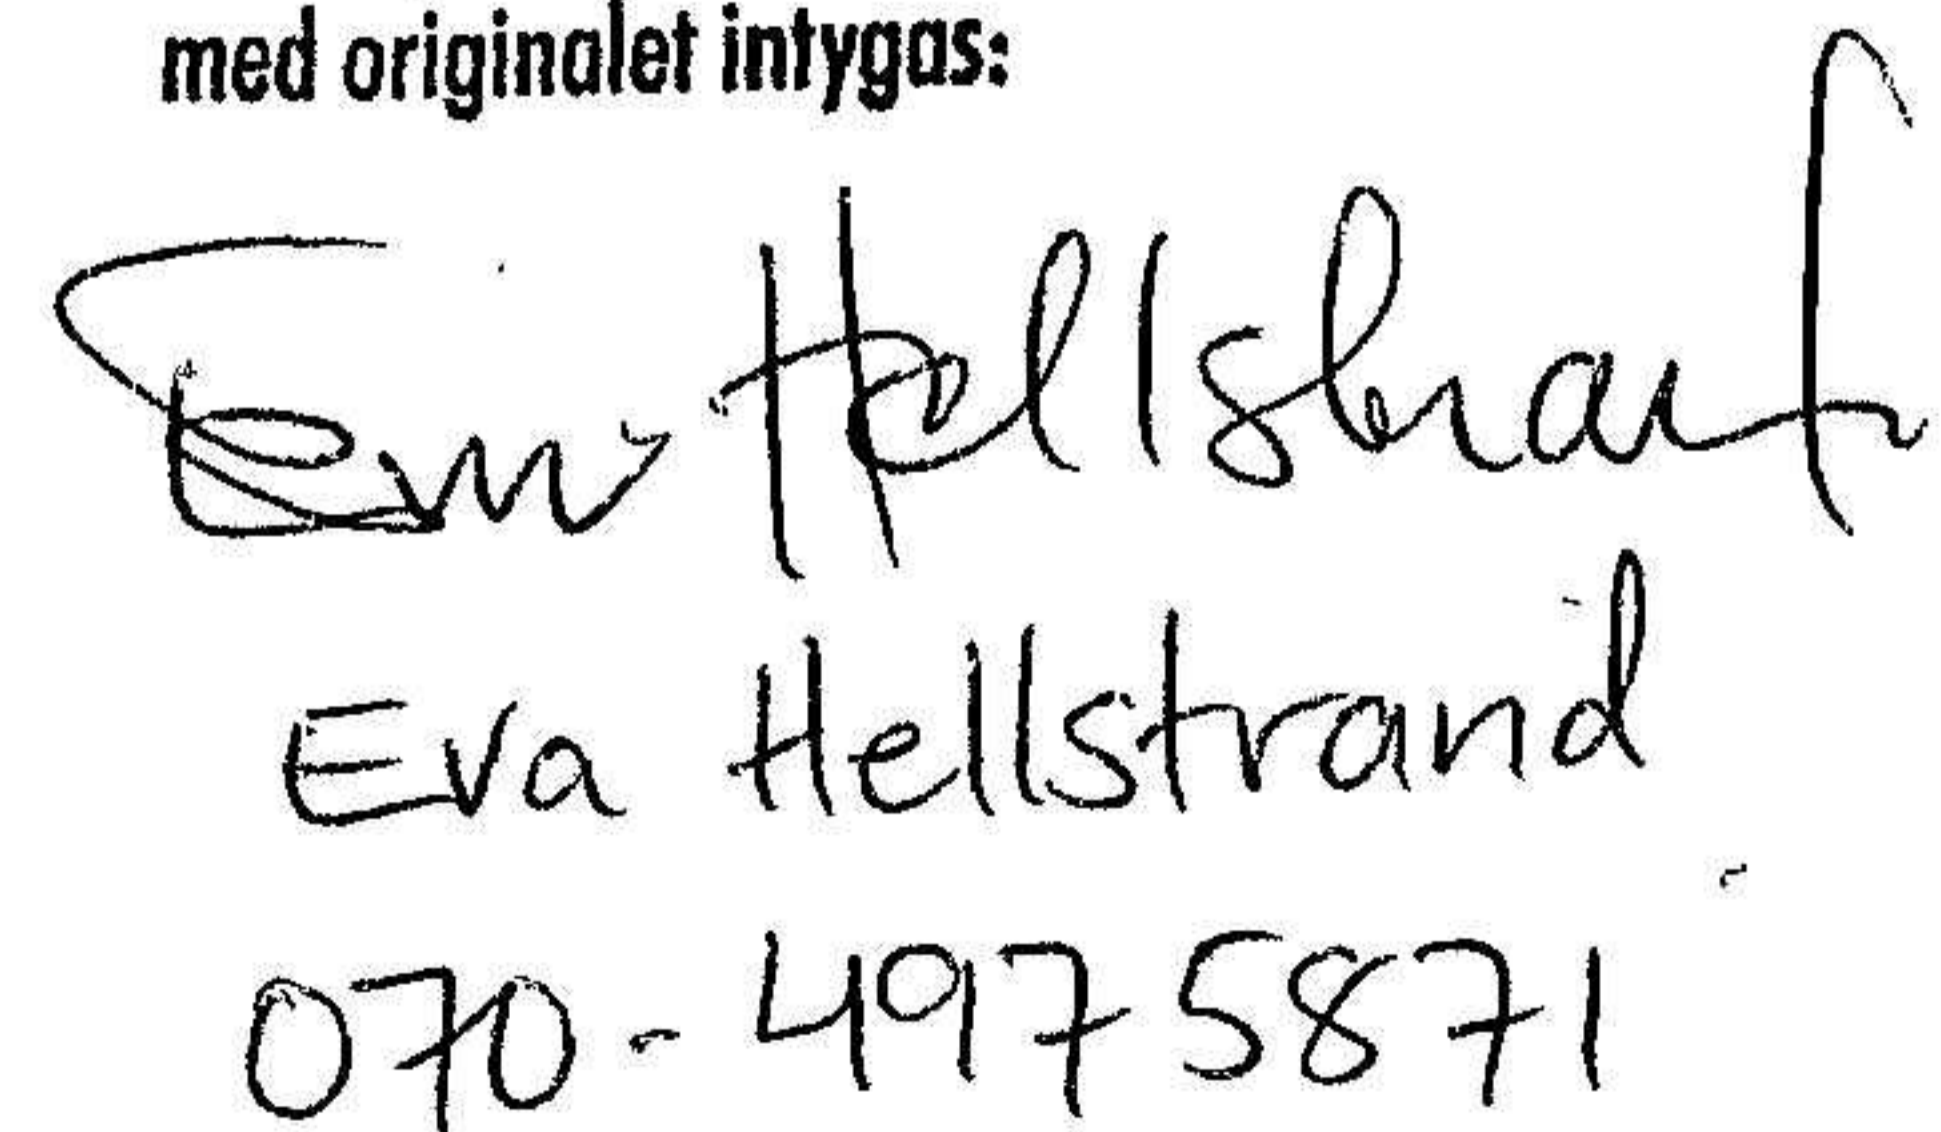 med originalet intygas:
Eva Hellstrand
Eva Hellstrand
070-497 5871